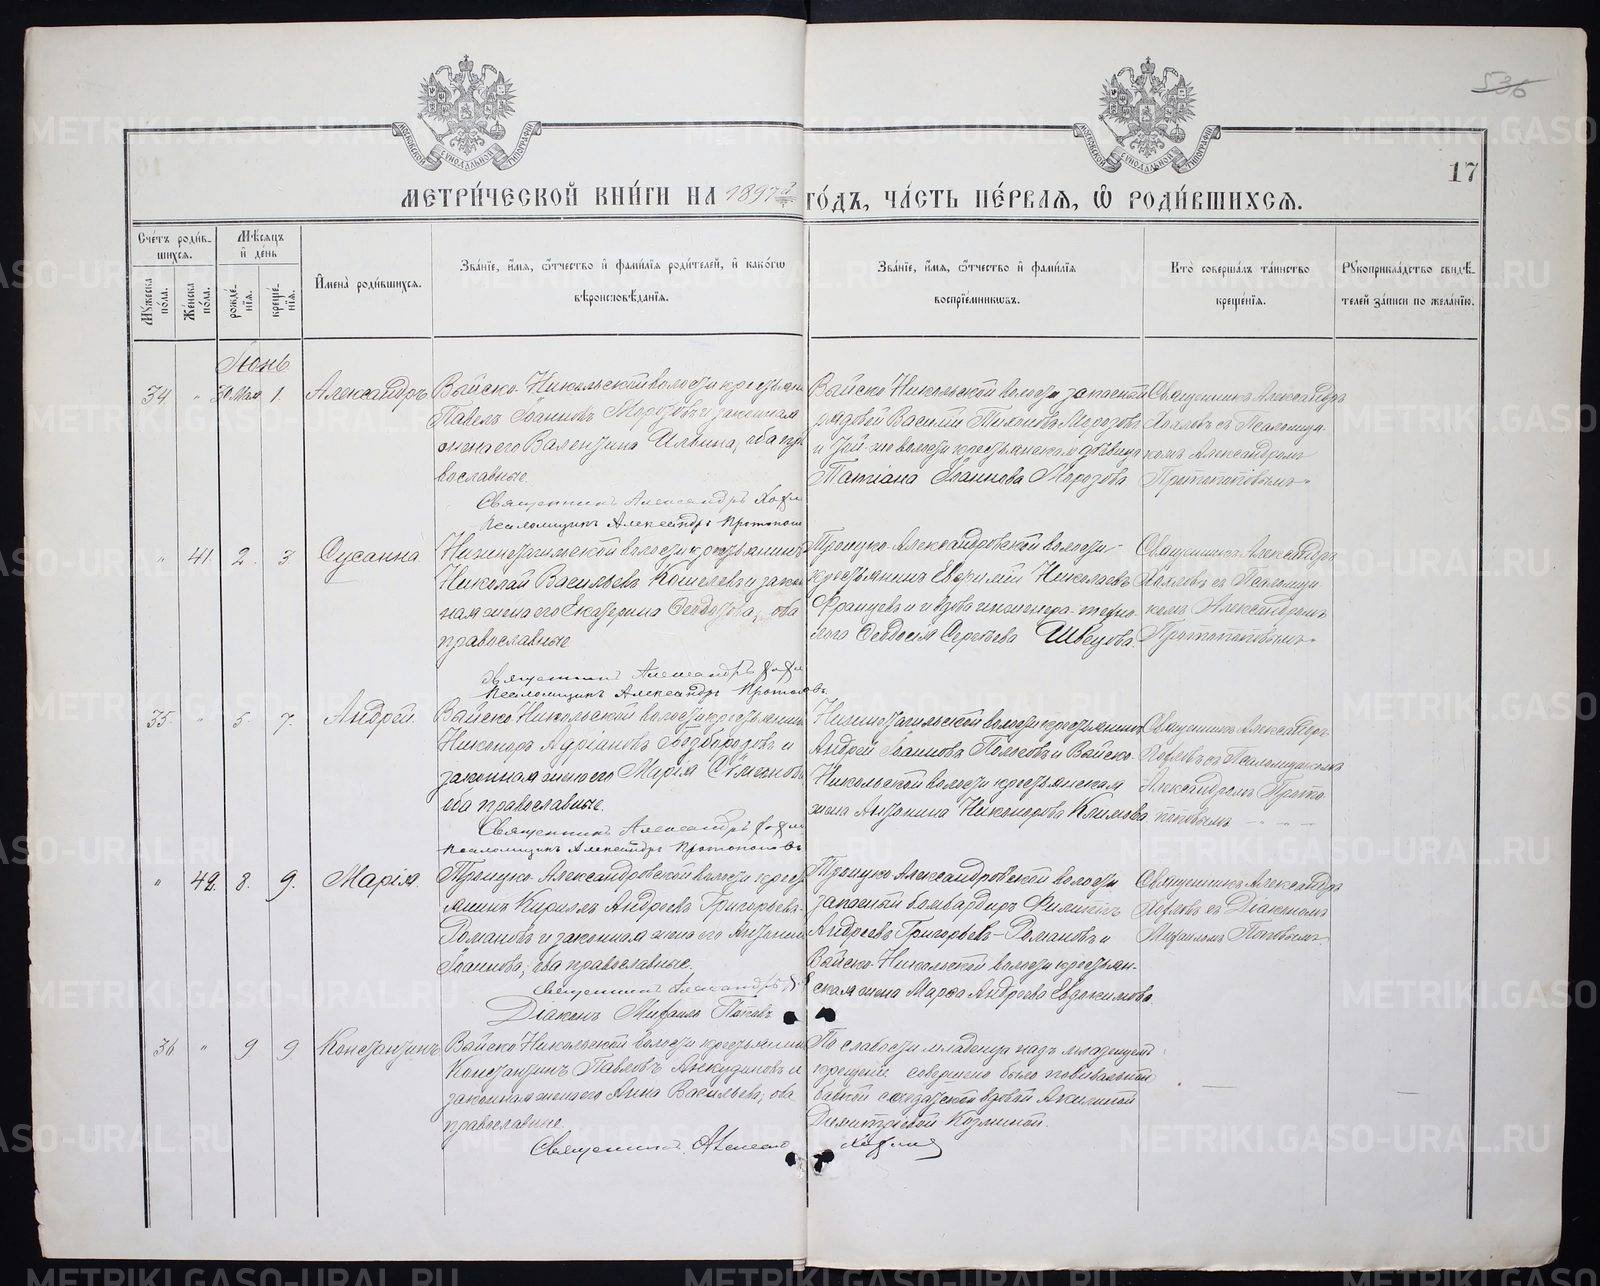 536
17
МОСКОВСКОЙ СѴНОДАЛЬНОЙ ТИПОГРАФІИ
МОСКОВСКОЙ СѴНОДАЛЬНОЙ ТИПОГРАФІИ
МЕТРИ́ЧЕСКОЙ КНИ́ГИ НА 1897й ГО́ДЪ, ЧА́СТЬ ПЕ́РВАЯ, Ѡ РОДИ́ВШИХСЯ.
Сче́тъ роди́вшихся.
Мѣ́сяцъ и де́нь
Имена̀ роди́вшихся.
Зва́нїе, и́мя, ѻ́тчество и фами́лїя роди́телей, и како́гѡ
вѣроисповѣ́данїя.
Зва́нїе, и́мя, ѻ́тчество и фами́лїя
воспрїе́мникѡвъ.
Кто̀ соверша́лъ та́инство
креще́нїя.
Рукоприкла́дство свидѣ́телей за́писи по жела́нїю.
Му́жеска по́ла.
Же́нска по́ла.
рожде́нїя.
креще́нїя.
Іюнь
34. " 30 Мая 1. Александръ
Выйско-Никольской волости крестьян
Павелъ Іоанновъ Морозовъ и законная
жена его Валентина Ильина, оба пра
вославные.
Священникъ Александръ Хохл
Псаломщикъ Александръ Протопоп
Выйско-Никольской волости запасный
рядовой Василій Тихоновъ Морозовъ
и той-же волости крестьянская дѣвица
Татіана Іоаннова Морозова
Священникъ Александръ
Хохловъ съ Псаломщи-
комъ Александромъ
Протопоповымъ
" 41. 2. 3. Сусанна.
Нижнетагильской волости крестьянинъ
Николай Васильевъ Кошелевъ и закон
ная жена его Екатерина Ѳедотова, оба
православные
Священникъ Александръ Хохл
Псаломщикъ Александръ Протопоповъ.
Троицко-Александровской волости
крестьянинъ Евѳимій Николаевъ
Францевъ и вдова инженера-техно
лога Ѳеодосія Сергѣева Швецова.
Священникъ Александръ
Хохловъ съ Псаломщи
комъ Александромъ
Протопоповымъ
35. " 5. 7. Андрей.
Выйско-Никольской волости крестьянинъ
Никаноръ Адріановъ Безбородовъ и
законная жена его Марія Сѵмеонов
оба православные.
Священникъ Александръ Хохл
Псаломщикъ Александръ Протопоповъ
Нижнетагильской волости крестьянинъ
Андрей Іоанновъ Поляковъ и Выйско-
Никольской волости крестьянская
жена Антонина Никанорова Климова.
Священникъ Александръ
Хохловъ съ Псаломщикомъ
Александромъ Прото
поповымъ
" 42. 8. 9. Марія.
Троицко-Александровской волости крест
янинъ Кириллъ Андреевъ Григорьевъ-
Романовъ и законная жена его Антонин
Іоаннова, оба православные.
Священникъ Александръ Х
Діаконъ Михаилъ Поповъ
Троицко-Александровской волости
запасный бомбардиръ Филиппъ
Андреевъ Григорьевъ-Романовъ и
Выйско-Никольской волости крестьян-
ская жена Марѳа Андреева Евдокимова.
Священникъ Александръ
Хохловъ съ Діакономъ
Михаиломъ Поповымъ
36 " 9 9 Константинъ
Выйско-Никольской волости крестьянин
Константинъ Павловъ Анкудиновъ и
законная жена его Анна Васильева, оба
православные.
Священникъ Александ Хохловъ
По слабости младенца надъ младенцемъ
крещеніе совершено было повивальной
бабкой солдатской вдовой Акилиной
Димитріевой Козминой.